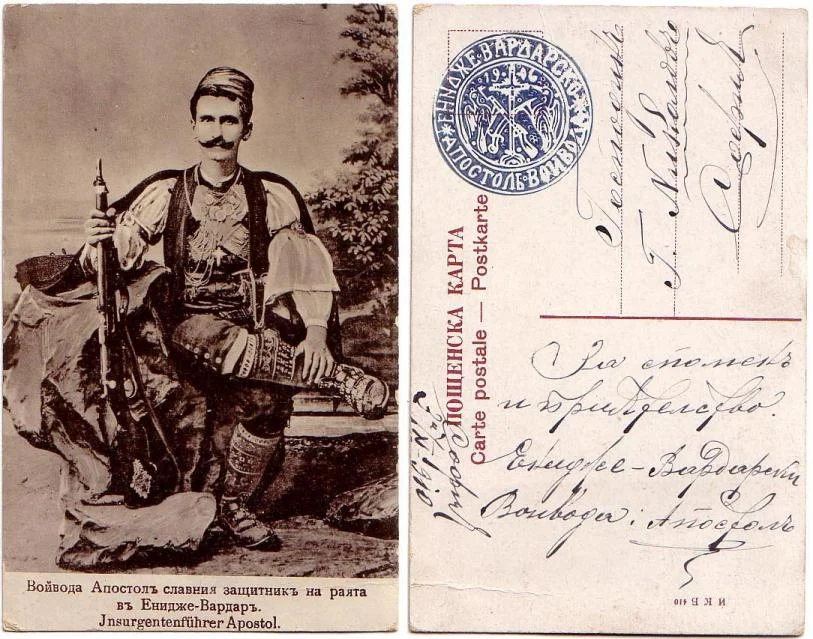 Войвода Апостолъ славния защитникъ на раята
въ Енидже-Вардаръ.
Jnsurgentenführer Apostol.
ЕНИДЖЕ·ВАРДАРСКИ
1906
АПОСТОЛЪ·ВОЙВОДА
ПОЩЕНСКА КАРТА
Carte postale — Postkarte
Господинъ
Г.
София
За споменъ
и приятелство.
Енидже-Вардарски
Войвода: Апостолъ
София
И К Б 410